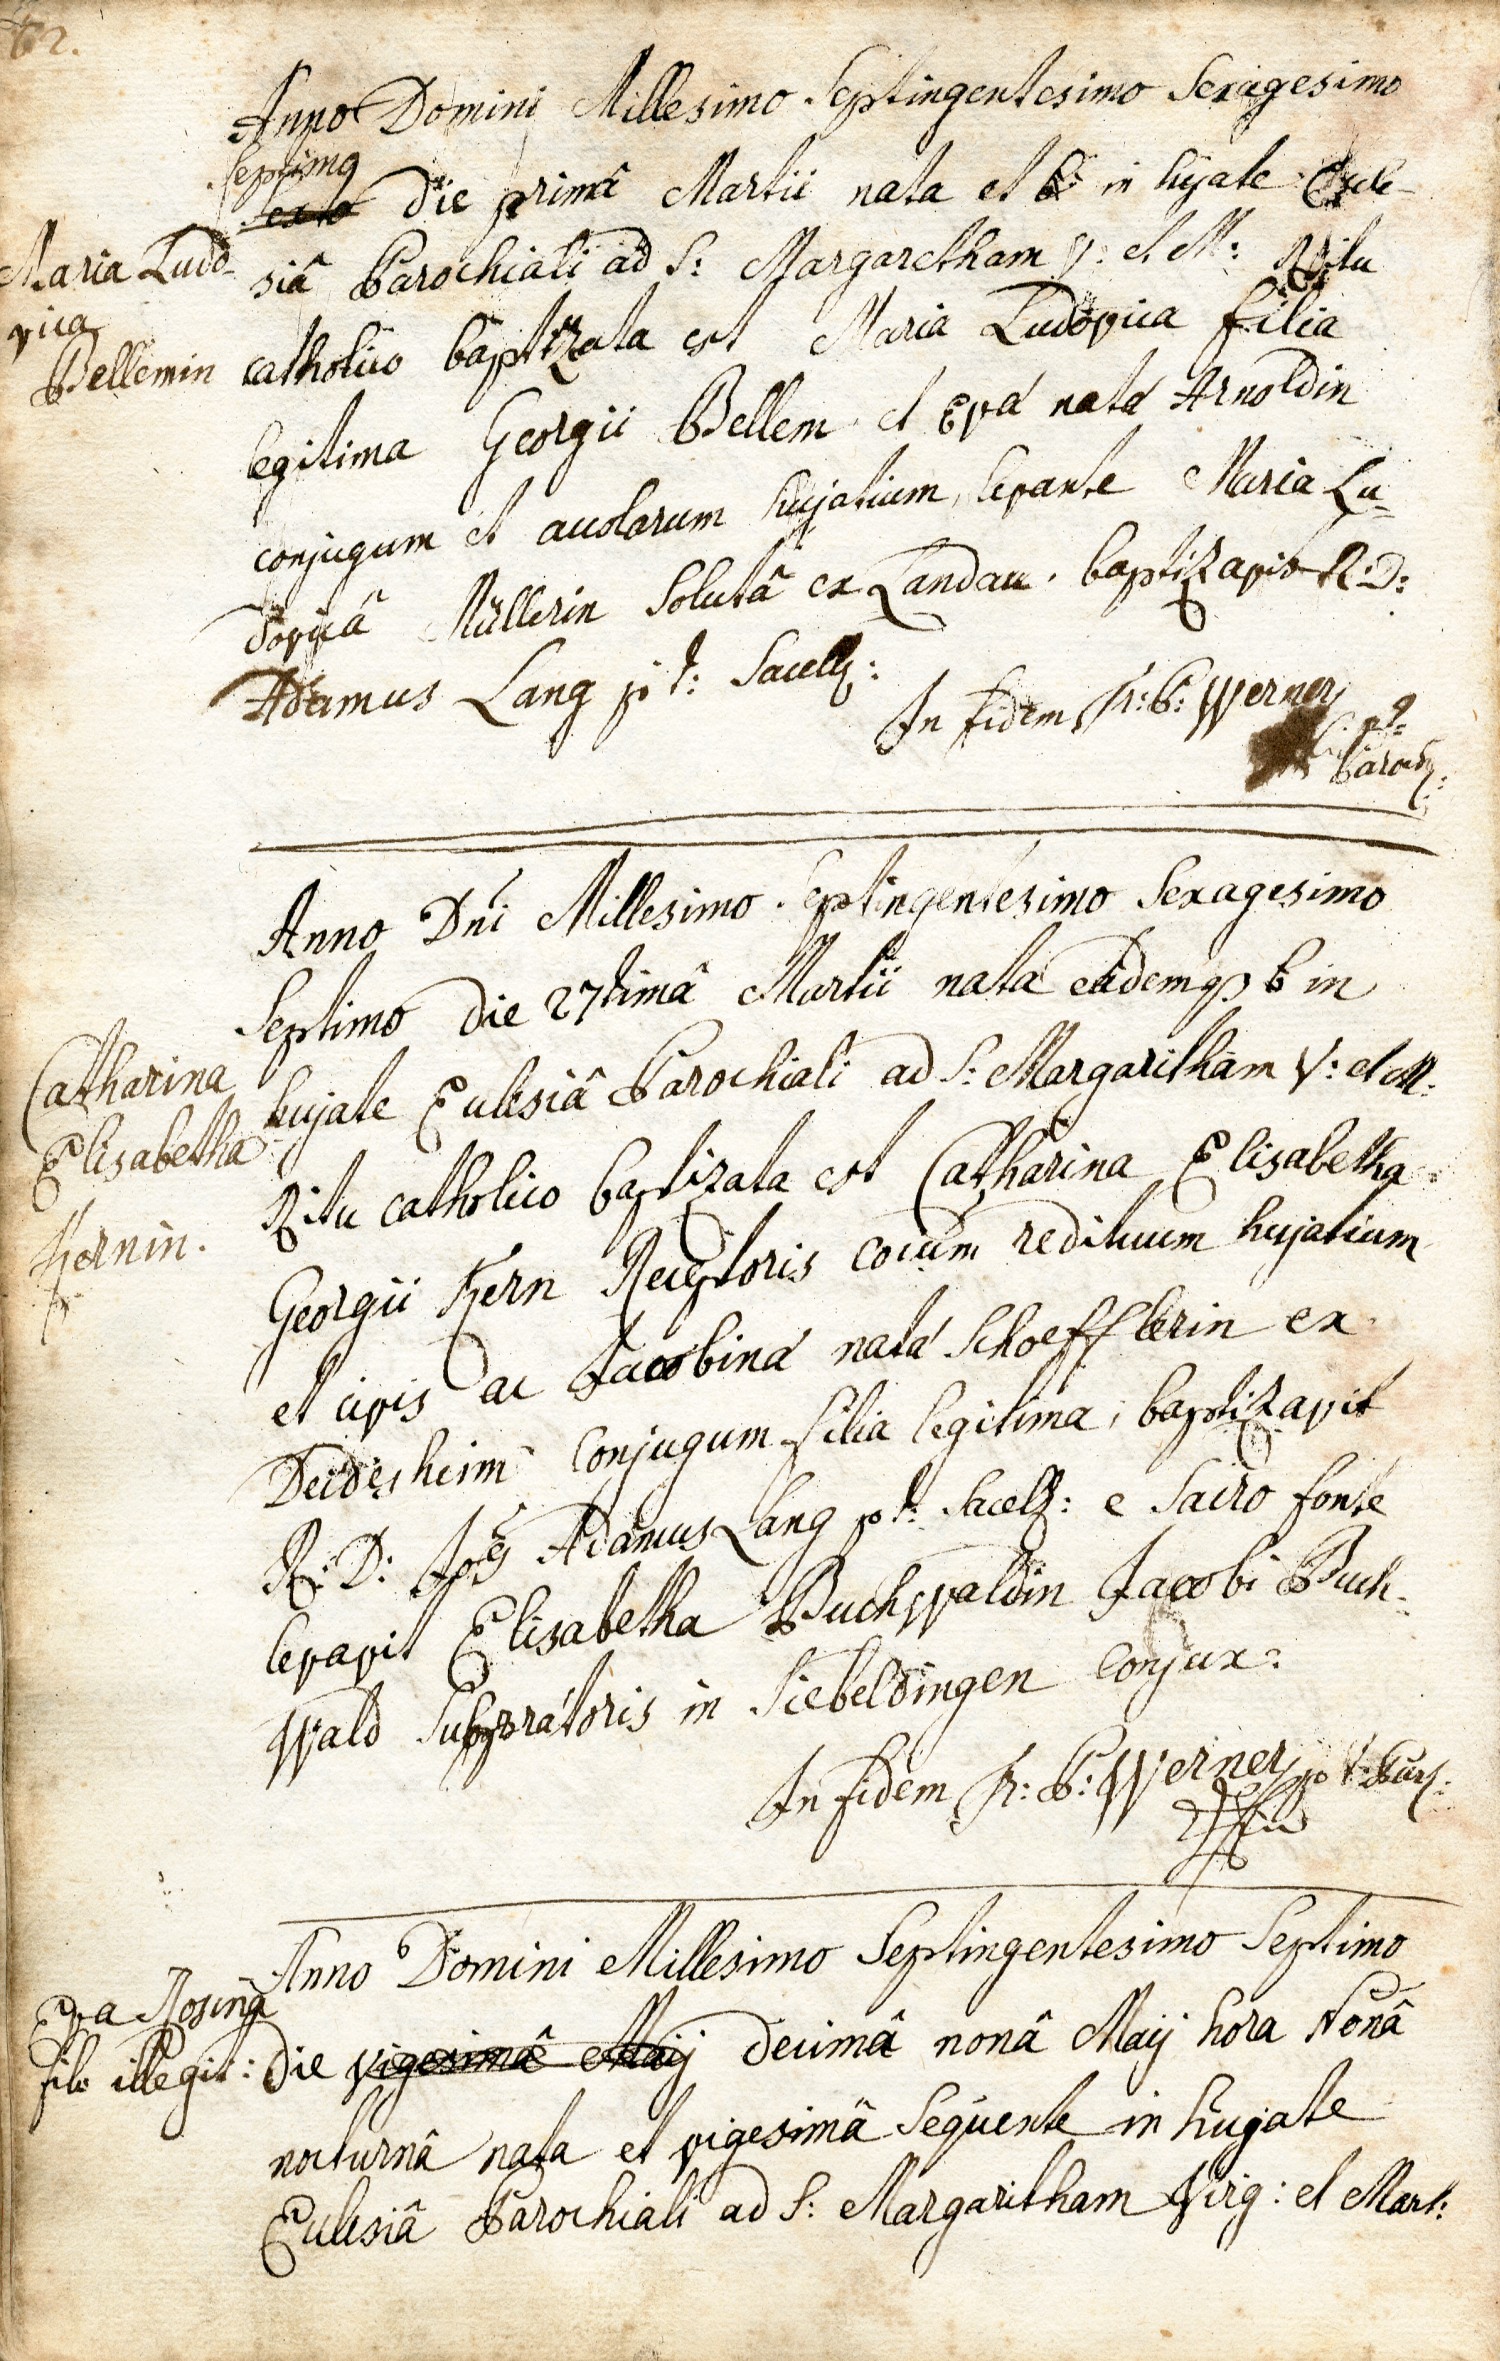 62.
Anno Domini Millesimo Septingentesimo Sexagesimo
Septimo
sexto die primâ Martii nata et b: in hujate Eccle-
Maria Ludo-
vica
Bellemin
siâ Parochiali ad S: Margaretham V: et M: Ritu
catholico baptizata est Maria Ludovica filia
legitima Georgii Bellem et Eva nata Arnoldin
conjugum et acolarum hujatium, levante Maria Lu-
dovicâ Müllerin Solutâ ex Landau. baptizavit R: D:
Adamus Lang p t: Sacell:
In fidem Fr: P: Werner
p t
Paroch:
Anno Dni Millesimo Septingentesimo Sexagesimo
Septimo die 27timâ Martii nata eâdemq b in
Catharina
Elisabetha
Kernin.
hujate Ecclesiâ Parochiali ad S: Margaritham V: et M:
Ritu catholico baptizata est Catharina Elisabetha
Georgii Kern Receptoris cocum redituum hujatium
et civis ac Jacobina nata Schoefflerin ex
Deidesheim Conjugum filia legitima, baptizavit
R: D: Joës Adamus Lang p t: Sacell: e Sacro fonte
levavit Elisabetha Buchwaldin Jacobi Buch-
wald Subpratoris in Siebeldingen Conjux:
In fidem Fr: P: Werner p t: Par:
Anno Domini Millesimo Septingentesimo Septimo
Eva Rosina
fila illegit:
die vigesimâ Maij decimâ nonâ Maij hora Nonâ
nocturnâ nata et vigesimâ Sequente in hujate
Ecclesiâ Parochiali ad S: Margaritham Virg: et Mart: